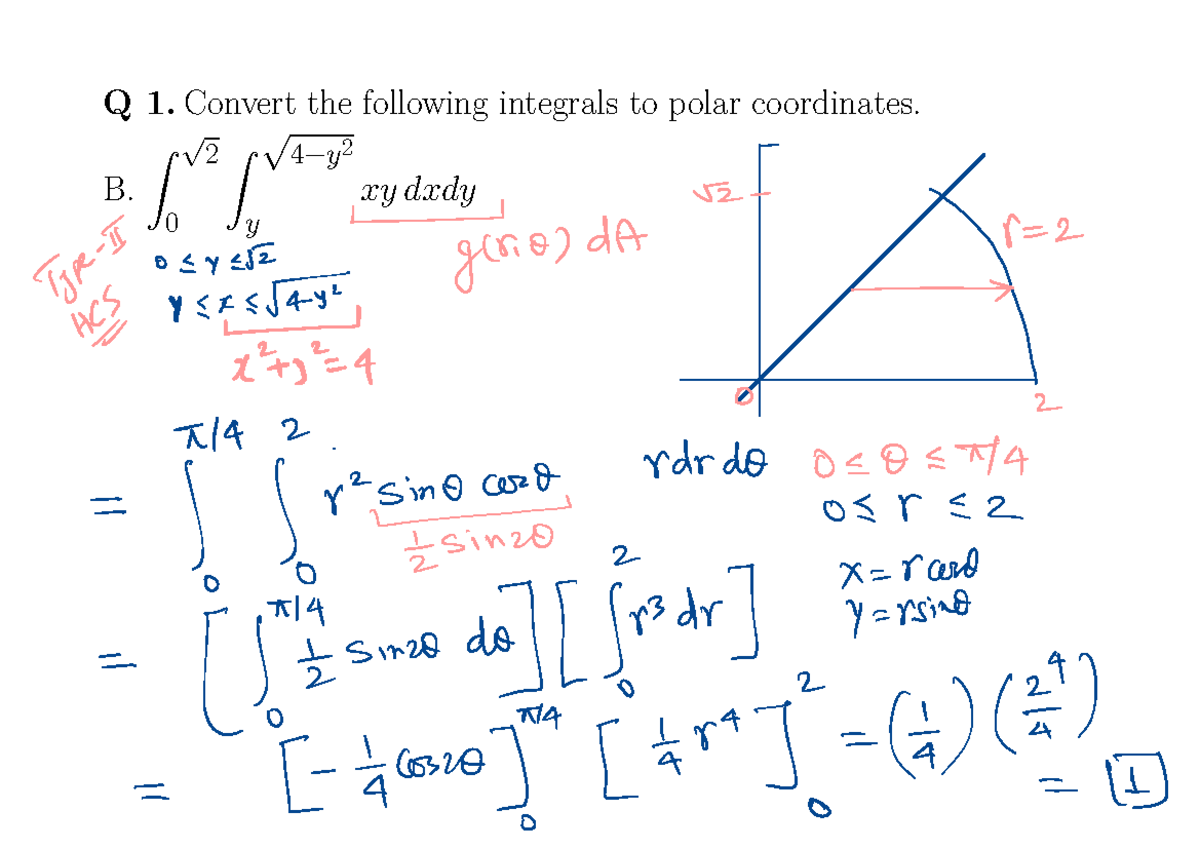 Q 1. Convert the following integrals to polar coordinates.
B. ∫₀^√2 ∫_y^√(4−y²) xy dxdy
Type-II
HCS
0 ≤ y ≤ √2
y ≤ x ≤ √(4-y²)
x²+y²=4
g(r,θ) dA
√2
r=2
0
2
= ∫₀^π/4 ∫₀^2 r² sinθ cosθ rdr dθ
½ sin2θ
0 ≤ θ ≤ π/4
0 ≤ r ≤ 2
x = r cosθ
y = r sinθ
= [∫₀^π/4 ½ sin2θ dθ] [∫₀^2 r³ dr]
= [-¼ cos2θ]₀^π/4 [¼ r⁴]₀^2 = (¼)(2⁴/4)
= 1